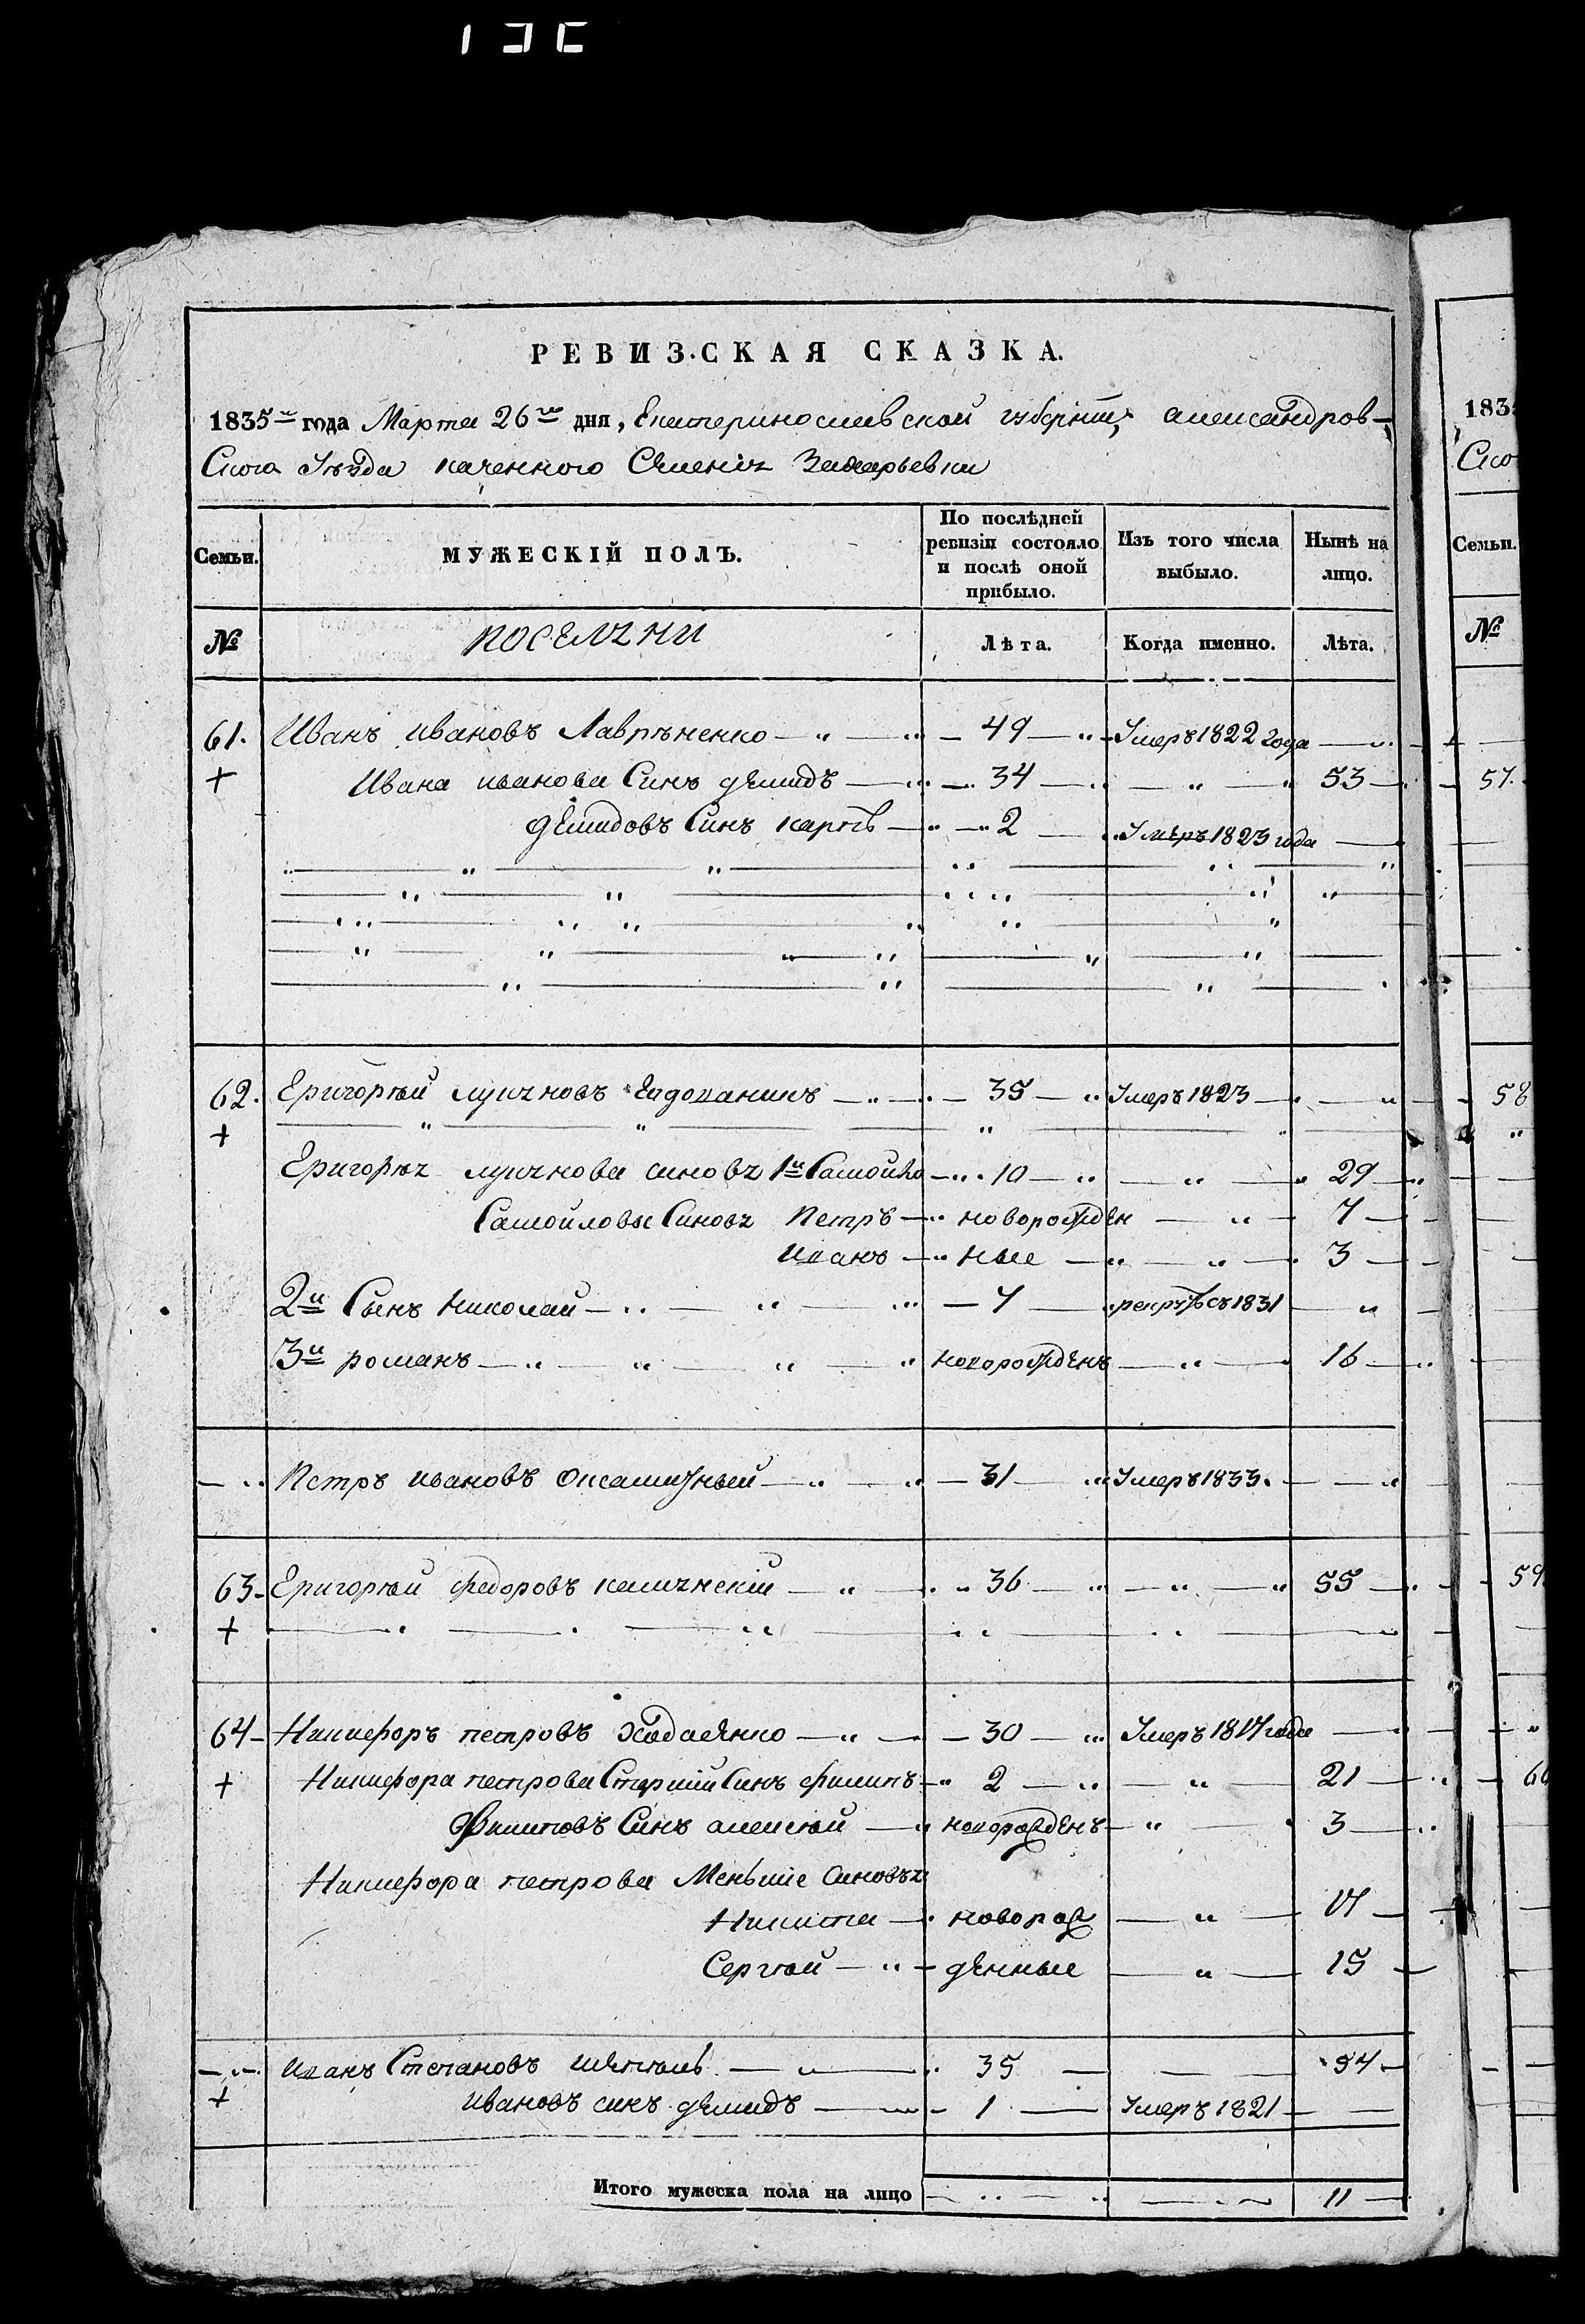 РЕВИЗСКАЯ СКАЗКА.
1835 го года Марта 26 го дня, Екатеринославской губерніи, александров-
Скога Уѣзда казенного Селенія Захарьевки
Семьи.
МУЖЕСКІЙ ПОЛЪ.
По послѣдней ревизіи состояло и послѣ оной прибыло.
Изъ того числа выбыло.
Нынѣ на лицо.
№ поселяни Лѣта. Когда именно. Лѣта.
61. Иванъ ивановъ Лаврѣненко 49 Умеръ 1822 года
Ивана иванова Синъ демидъ 34 53
демидовъ Синъ карпъ 2 Умеръ 1823 года
62. Григорѣй лукяновъ 35 Умеръ 1823
Григорѣя лукянова синовя 1й Самойло 10 29
Самойловы Синовя Петръ новорожден 7
иванъ ные 3
2й Сынъ николай 7 1831
3й романъ новорожденъ 16
Петръ ивановъ 31 Умеръ 1833.
63 Григорѣй федоровъ 36 55
64 Никифоръ петровъ 30 Умеръ 1817 года
Никифора петрова Старшій Синъ филипъ 2 21
Филиповъ Синъ алексѣй новорожденъ 3
Никифора петрова Меньшіе Синовья
Никита новорож 17
Сергѣй денные 15
иванъ Степановъ 35 54
ивановъ синъ демидъ 1 Умеръ 1821
Итого мужеска пола на лицо 11
183
Ско
Семьи.
№
57.
58
59
60